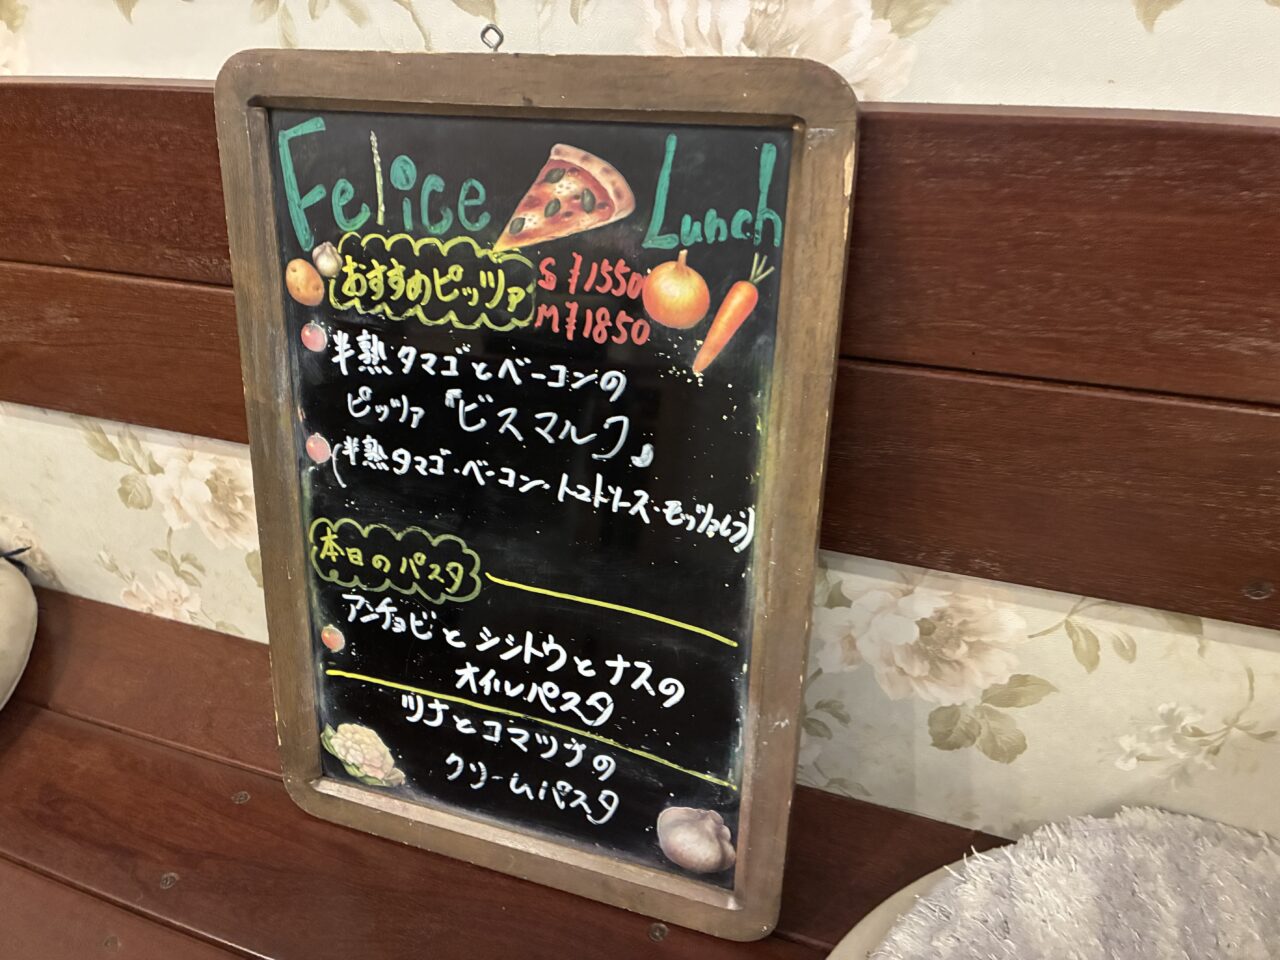 Felice Lunch
おすすめピッツァ S ¥1550
M ¥1850
半熟タマゴとベーコンの
ピッツァ『ビスマルク』
(半熟タマゴ・ベーコン・トマトソース・モッツァレラ)
本日のパスタ
アンチョビとシシトウとナスの
オイルパスタ
ツナとコマツナの
クリームパスタ